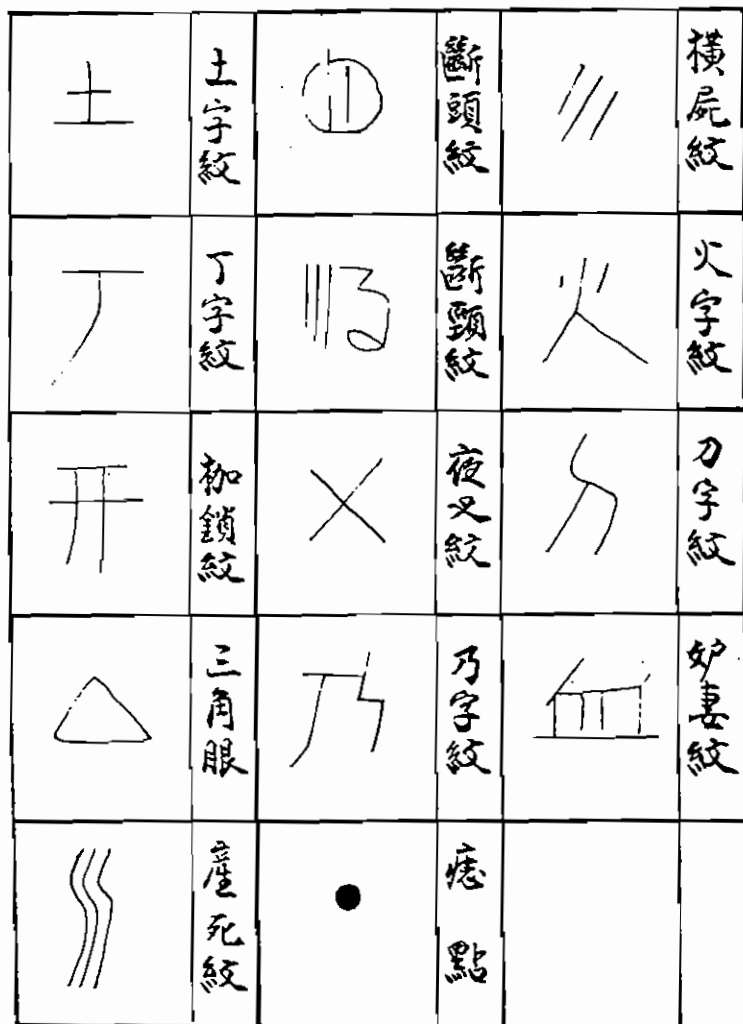 橫屍紋
斷頭紋
土字紋
火字紋
斷頸紋
丁字紋
刀字紋
夜叉紋
枷鎖紋
妒妻紋
乃字紋
三角眼
痣點
產死紋